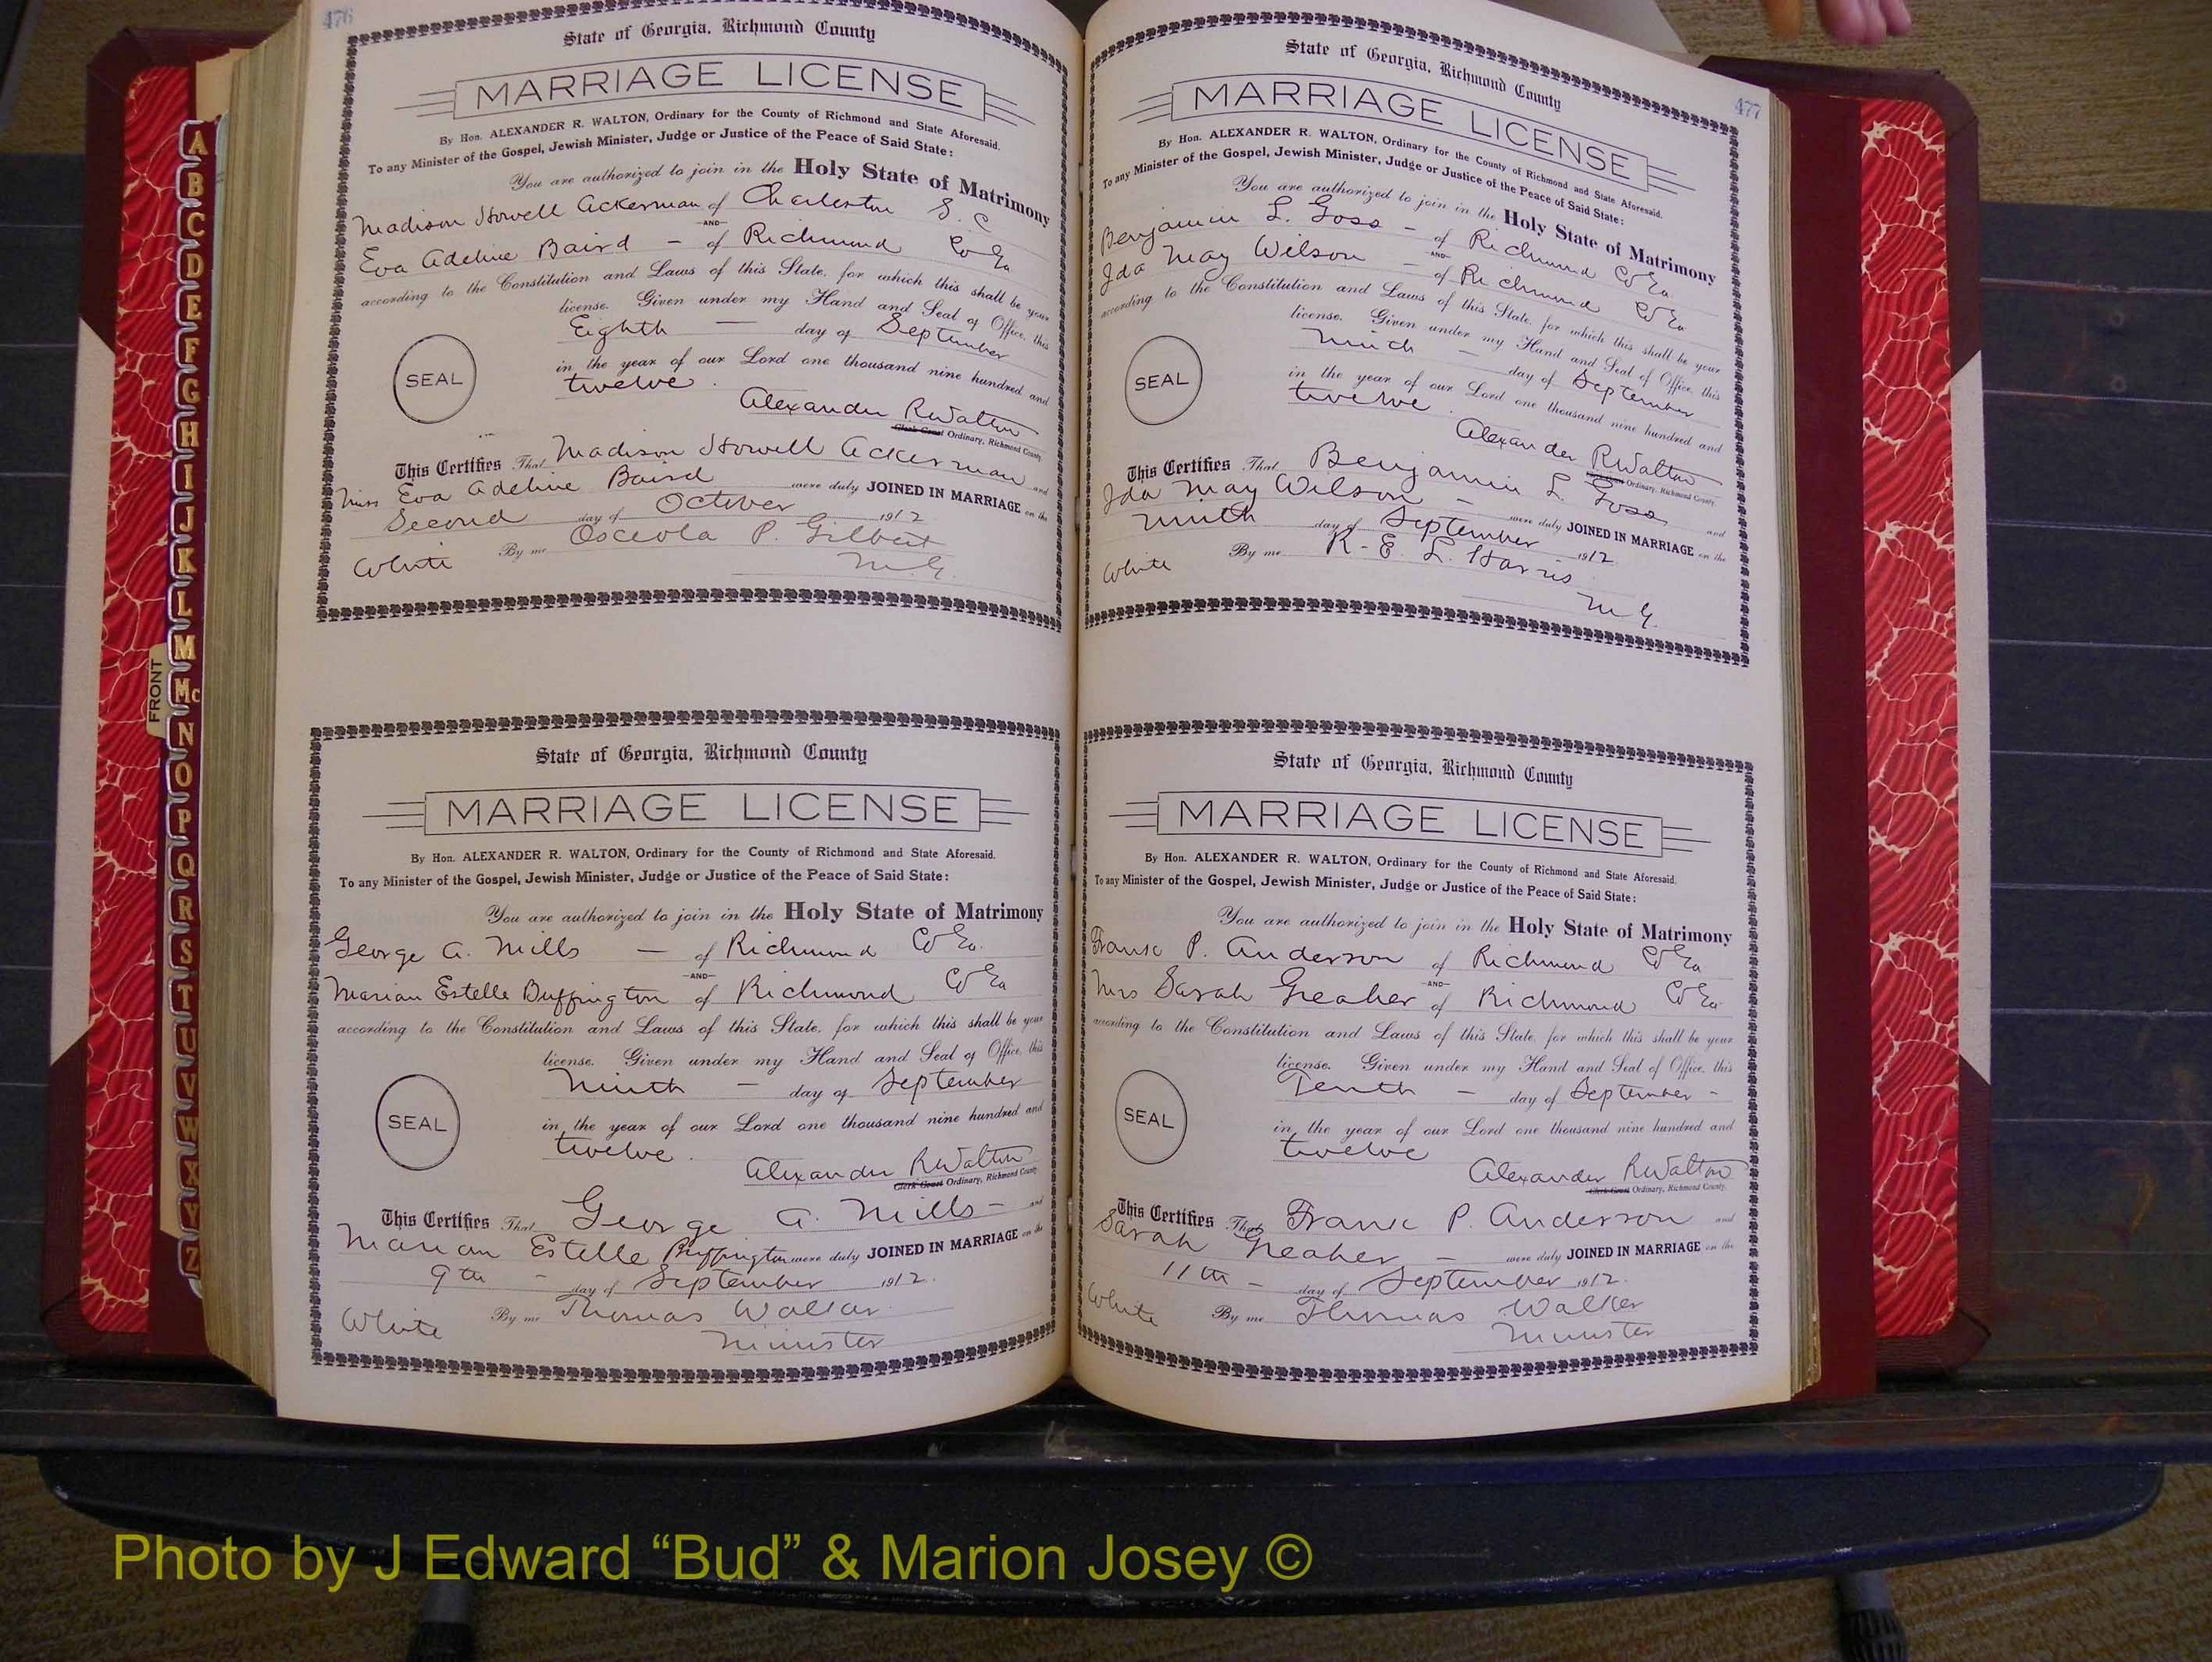 476
State of Georgia, Richmond County
MARRIAGE LICENSE
By Hon. ALEXANDER R. WALTON, Ordinary for the County of Richmond and State Aforesaid.
To any Minister of the Gospel, Jewish Minister, Judge or Justice of the Peace of Said State:
You are authorized to join in the Holy State of Matrimony
Madison Howell Ackerman of Charleston S. C
AND
Eva Adeline Baird - of Richmond Co Ga
according to the Constitution and Laws of this State, for which this shall be your
license. Given under my Hand and Seal of Office, this
Eighth - day of September
SEAL
in the year of our Lord one thousand nine hundred and
twelve.
Alexander R Walton
Clerk Court Ordinary, Richmond County.
This Certifies That Madison Howell Ackerman and
Miss Eva Adeline Baird were duly JOINED IN MARRIAGE on the
Second day of October 1912
White By me Osceola P. Gilbert
M. G.
State of Georgia, Richmond County
MARRIAGE LICENSE
By Hon. ALEXANDER R. WALTON, Ordinary for the County of Richmond and State Aforesaid.
To any Minister of the Gospel, Jewish Minister, Judge or Justice of the Peace of Said State:
You are authorized to join in the Holy State of Matrimony
George A. Mills - of Richmond Co Ga.
AND
Marian Estelle Buffington of Richmond Co Ga
according to the Constitution and Laws of this State, for which this shall be your
license. Given under my Hand and Seal of Office, this
Ninth - day of September
SEAL
in the year of our Lord one thousand nine hundred and
twelve.
Alexander R Walton
Clerk Court Ordinary, Richmond County.
This Certifies That George A. Mills - and
Marian Estelle Buffington were duly JOINED IN MARRIAGE on the
9th - day of September 1912.
White By me Thomas Walker
Minister
477
State of Georgia, Richmond County
MARRIAGE LICENSE
By Hon. ALEXANDER R. WALTON, Ordinary for the County of Richmond and State Aforesaid.
To any Minister of the Gospel, Jewish Minister, Judge or Justice of the Peace of Said State:
You are authorized to join in the Holy State of Matrimony
Benjamin L. Goss - of Richmond Co Ga
AND
Ida May Wilson - of Richmond Co Ga
according to the Constitution and Laws of this State, for which this shall be your
license. Given under my Hand and Seal of Office, this
Ninth - day of September
SEAL
in the year of our Lord one thousand nine hundred and
twelve.
Alexander R Walton
Ordinary, Richmond County.
This Certifies That Benjamin L. Goss and
Ida May Wilson - were duly JOINED IN MARRIAGE on the
Ninth day of September 1912
White By me R. E. L. Harris
M. G.
State of Georgia, Richmond County
MARRIAGE LICENSE
By Hon. ALEXANDER R. WALTON, Ordinary for the County of Richmond and State Aforesaid.
To any Minister of the Gospel, Jewish Minister, Judge or Justice of the Peace of Said State:
You are authorized to join in the Holy State of Matrimony
Frank P. Anderson of Richmond Co Ga
AND
Mrs Sarah Greaher of Richmond Co Ga
according to the Constitution and Laws of this State, for which this shall be your
license. Given under my Hand and Seal of Office, this
Tenth - day of September -
SEAL
in the year of our Lord one thousand nine hundred and
twelve
Alexander R Walton
Clerk Court Ordinary, Richmond County.
This Certifies That Frank P. Anderson and
Sarah Greaher - were duly JOINED IN MARRIAGE on the
11th - day of September 1912.
White By me Thomas Walker
Minister
FRONT
A
B
C
D
E
F
G
H
I
J
K
L
M
Mc
N
O
P
Q
R
S
T
U
V
W
X
Y
Z
Photo by J Edward “Bud” & Marion Josey ©